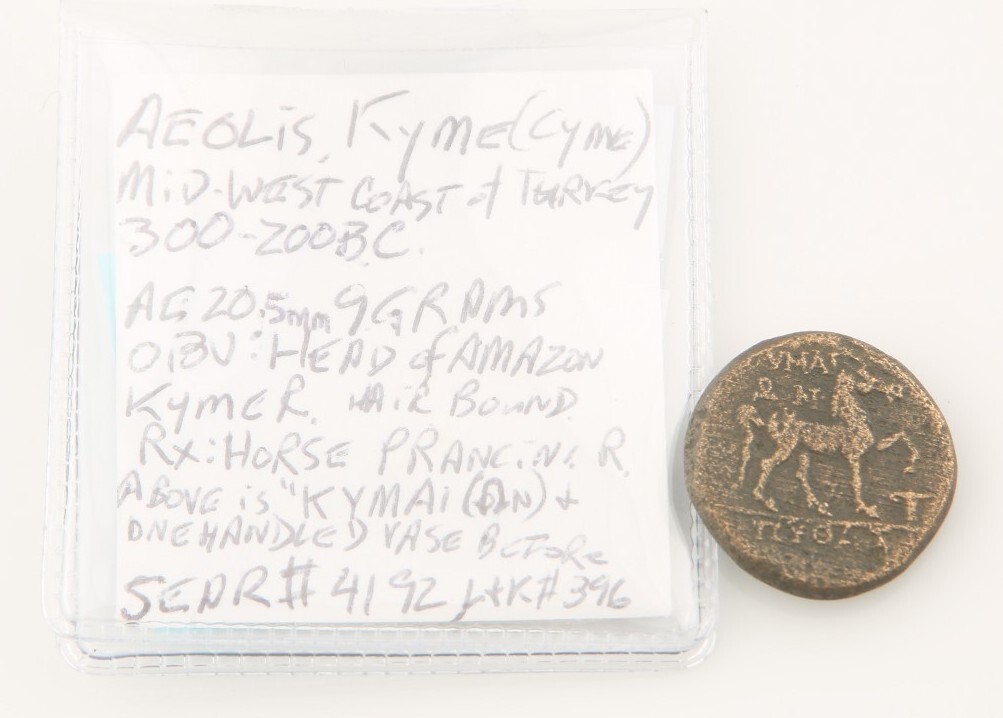 AEOLIS, KYME (CYME)
MID-WEST COAST of TURKEY
300-200 B.C.
AE 20.5mm 9 GRAMS
OBV: HEAD of AMAZON
KYME R. HAIR BOUND
RX: HORSE PRANCING R.
ABOVE is "KYMAI (ΩN) +
ONE HANDLED VASE BEFORE
SEAR # 4192 #396
ΥΜΑΙ
Ω Ν